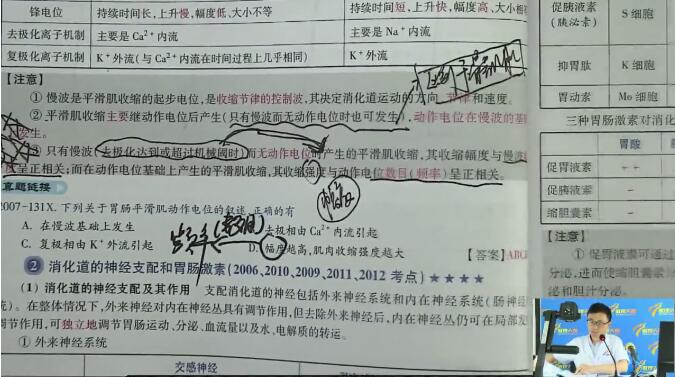 锋电位
持续时间长,上升慢,幅度低、大小不等
持续时间短,上升快,幅度高、大小相
去极化离子机制
主要是 Ca²⁺内流
主要是 Na⁺内流
复极化离子机制
K⁺外流(与 Ca²⁺内流在时间过程上几乎相同)
K⁺外流
【注意】
① 慢波是平滑肌收缩的起步电位,是收缩节律的控制波,其决定消化道运动的方向、节律和速度。
② 平滑肌收缩主要继动作电位后产生(只有慢波而无动作电位时也可发生),动作电位在慢波的基
发生。
③ 只有慢波(去极化达到或超过机械阈时)而无动作电位时产生的平滑肌收缩,其收缩幅度与慢波
度呈正相关;而在动作电位基础上产生的平滑肌收缩,其收缩强度与动作电位数目(频率)呈正相关。
真题链接
2007-131X. 下列关于胃肠平滑肌动作电位的叙述,正确的有
A. 在慢波基础上发生
去极相由 Ca²⁺内流引起
C. 复极相由 K⁺外流引起
D. 幅度越高,肌肉收缩强度越大
【答案】ABC
2 消化道的神经支配和胃肠激素(2006、2010、2009、2011、2012 考点)★★★★
(1) 消化道的神经支配及其作用 支配消化道的神经包括外来神经系统和内在神经系统(肠神经
统)。在整体情况下,外来神经对内在神经丛具有调节作用,但去除外来神经后,内在神经丛仍可在局部发
调节作用,可独立地调节胃肠运动、分泌、血流量以及水、电解质的转运。
① 外来神经系统
交感神经
促胰液素
(胰泌素)
S 细胞
抑胃肽
K 细胞
胃动素
Mo 细胞
三种胃肠激素对消化
胃酸
促胃液素
++
促胰液素
－
缩胆囊素
【注意】
① 促胃液素可通过
分泌,进而使缩胆囊素
泌和胆汁分泌。